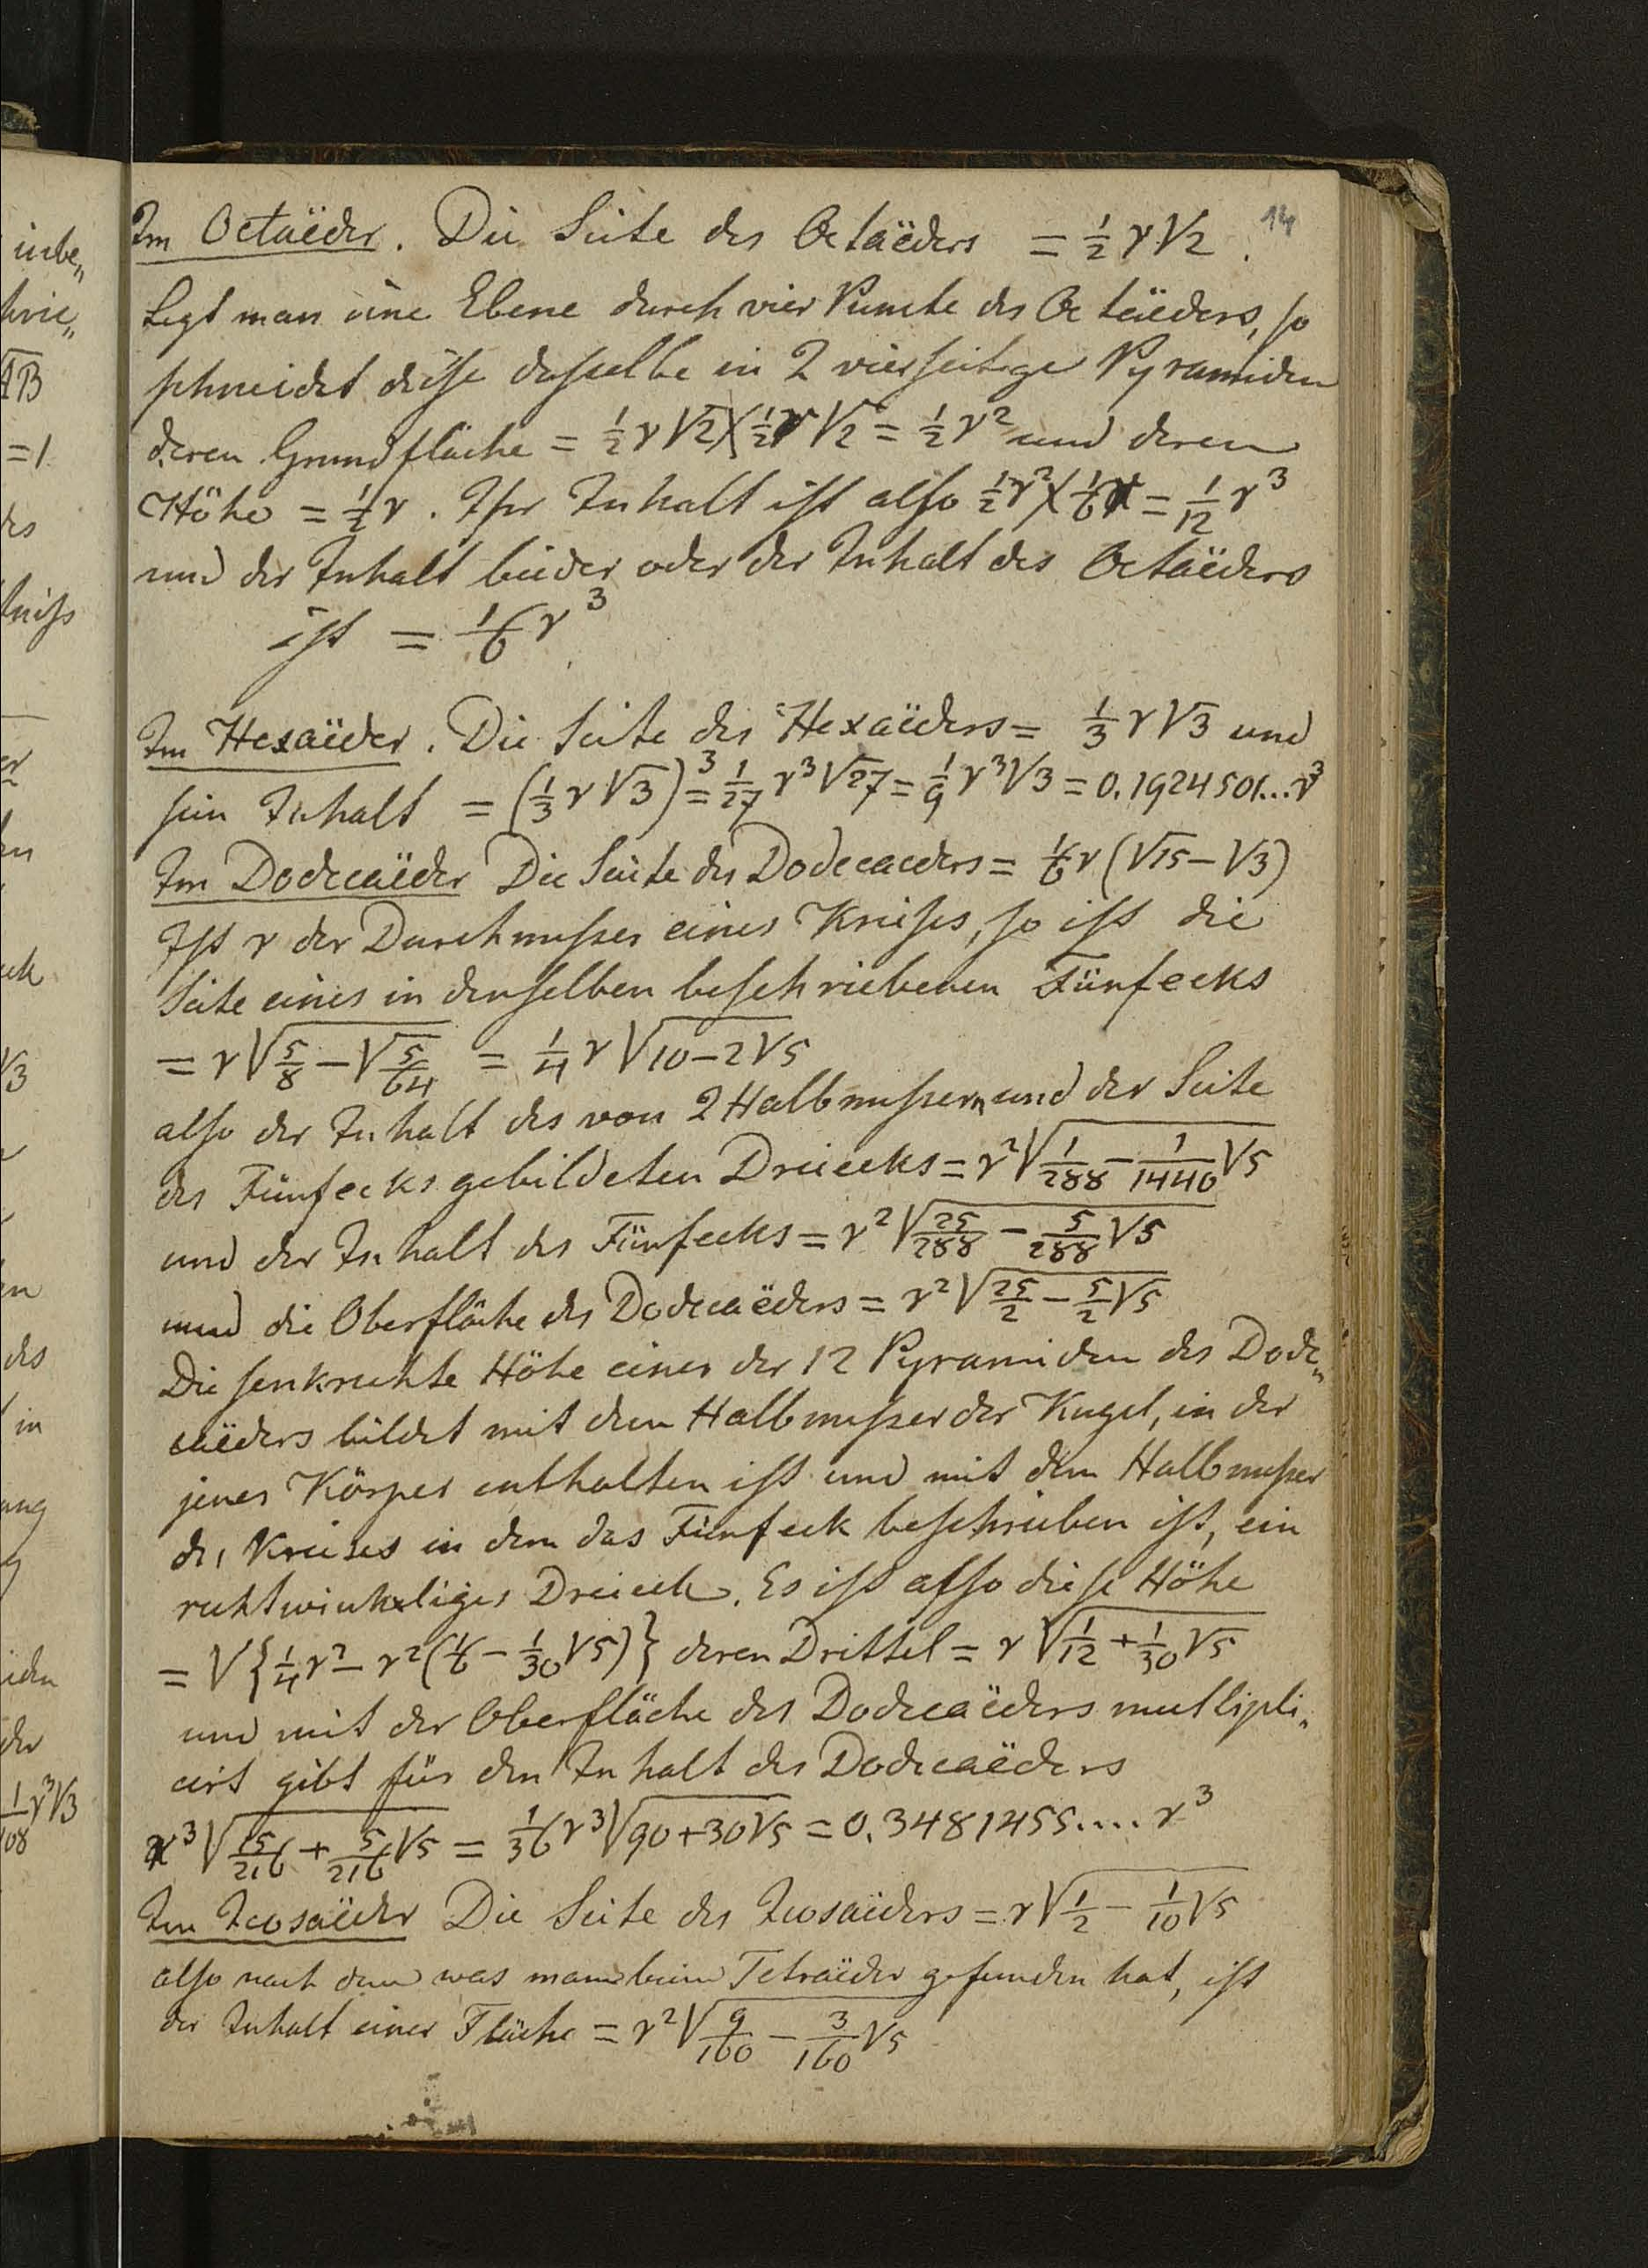 14
Im Octaëder. Die Seite des Octaëders = 1/2 r √2.
Legt man eine Ebene durch vier Puncte des Octaëders, so
schneidet diese dasselbe in 2 vierseitige Pyramiden
deren Grundfläche = 1/2 r √2 × 1/2 r √2 = 1/2 r² und deren
Höhe = 1/2 r. Ihr Inhalt ist also 1/2 r² × 1/6 r = 1/12 r³
und der Inhalt beider oder der Inhalt des Octaëders
ist = 1/6 r³
Im Hexaëder. Die Seite des Hexaëders = 1/3 r √3 und
sein Inhalt = (1/3 r √3)³ = 1/27 r³ √27 = 1/9 r³ √3 = 0.1924501... r³
Im Dodecaëder Die Seite des Dodecaeders = 1/6 r (√15 − √3)
Ist r der Durchmesser eines Kreises, so ist die
Seite eines in denselben beschriebenen Fünfecks
= r √(5/8 − √(5/64)) = 1/4 r √(10 − 2√5)
also der Inhalt des von 2 Halbmessern und der Seite
des Fünfecks gebildeten Dreiecks = r² √(1/288 − 1/1440 √5)
und der Inhalt des Fünfecks = r² √(25/288 − 5/288 √5)
und die Oberfläche des Dodecaëders = r² √(25/2 − 5/2 √5)
Die senkrechte Höhe einer der 12 Pyramiden des Dode„
caëders bildet mit dem Halbmesser der Kugel, in der
jener Körper enthalten ist und mit dem Halbmesser
des Kreises in dem das Fünfeck beschrieben ist, ein
rechtwinkeliges Dreieck. Es ist also diese Höhe
= √{1/4 r² − r² (1/6 − 1/30 √5)} deren Drittel = r √(1/12 + 1/30 √5)
und mit der Oberfläche des Dodecaëders multipli„
cirt gibt für den Inhalt des Dodecaëders
r³ √(15/216 + 5/216 √5) = 1/36 r³ √(90 + 30√5) = 0.3481455.... r³
Im Icosaëder Die Seite des Icosaëders = r √(1/2 − 1/10 √5)
also nach dem was man beim Tetraëder gefunden hat, ist
der Inhalt einer Fläche = r² √(9/160 − 3/160 √5)